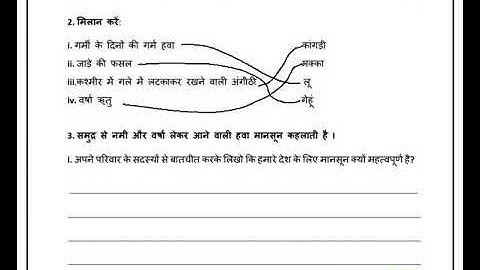 2. मिलान करें:
i. गर्मी के दिनों की गर्म हवा कांगड़ी
ii. जाड़े की फसल मक्का
iii.कश्मीर में गले में लटकाकर रखने वाली अंगीठी लू
iv. वर्षा ऋतु गेहूं
3. समुद्र से नमी और वर्षा लेकर आने वाली हवा मानसून कहलाता है ।
i. अपने परिवार के सदस्यों से बातचीत करके लिखो कि हमारे देश के लिए मानसून क्यों महत्वपूर्ण है?